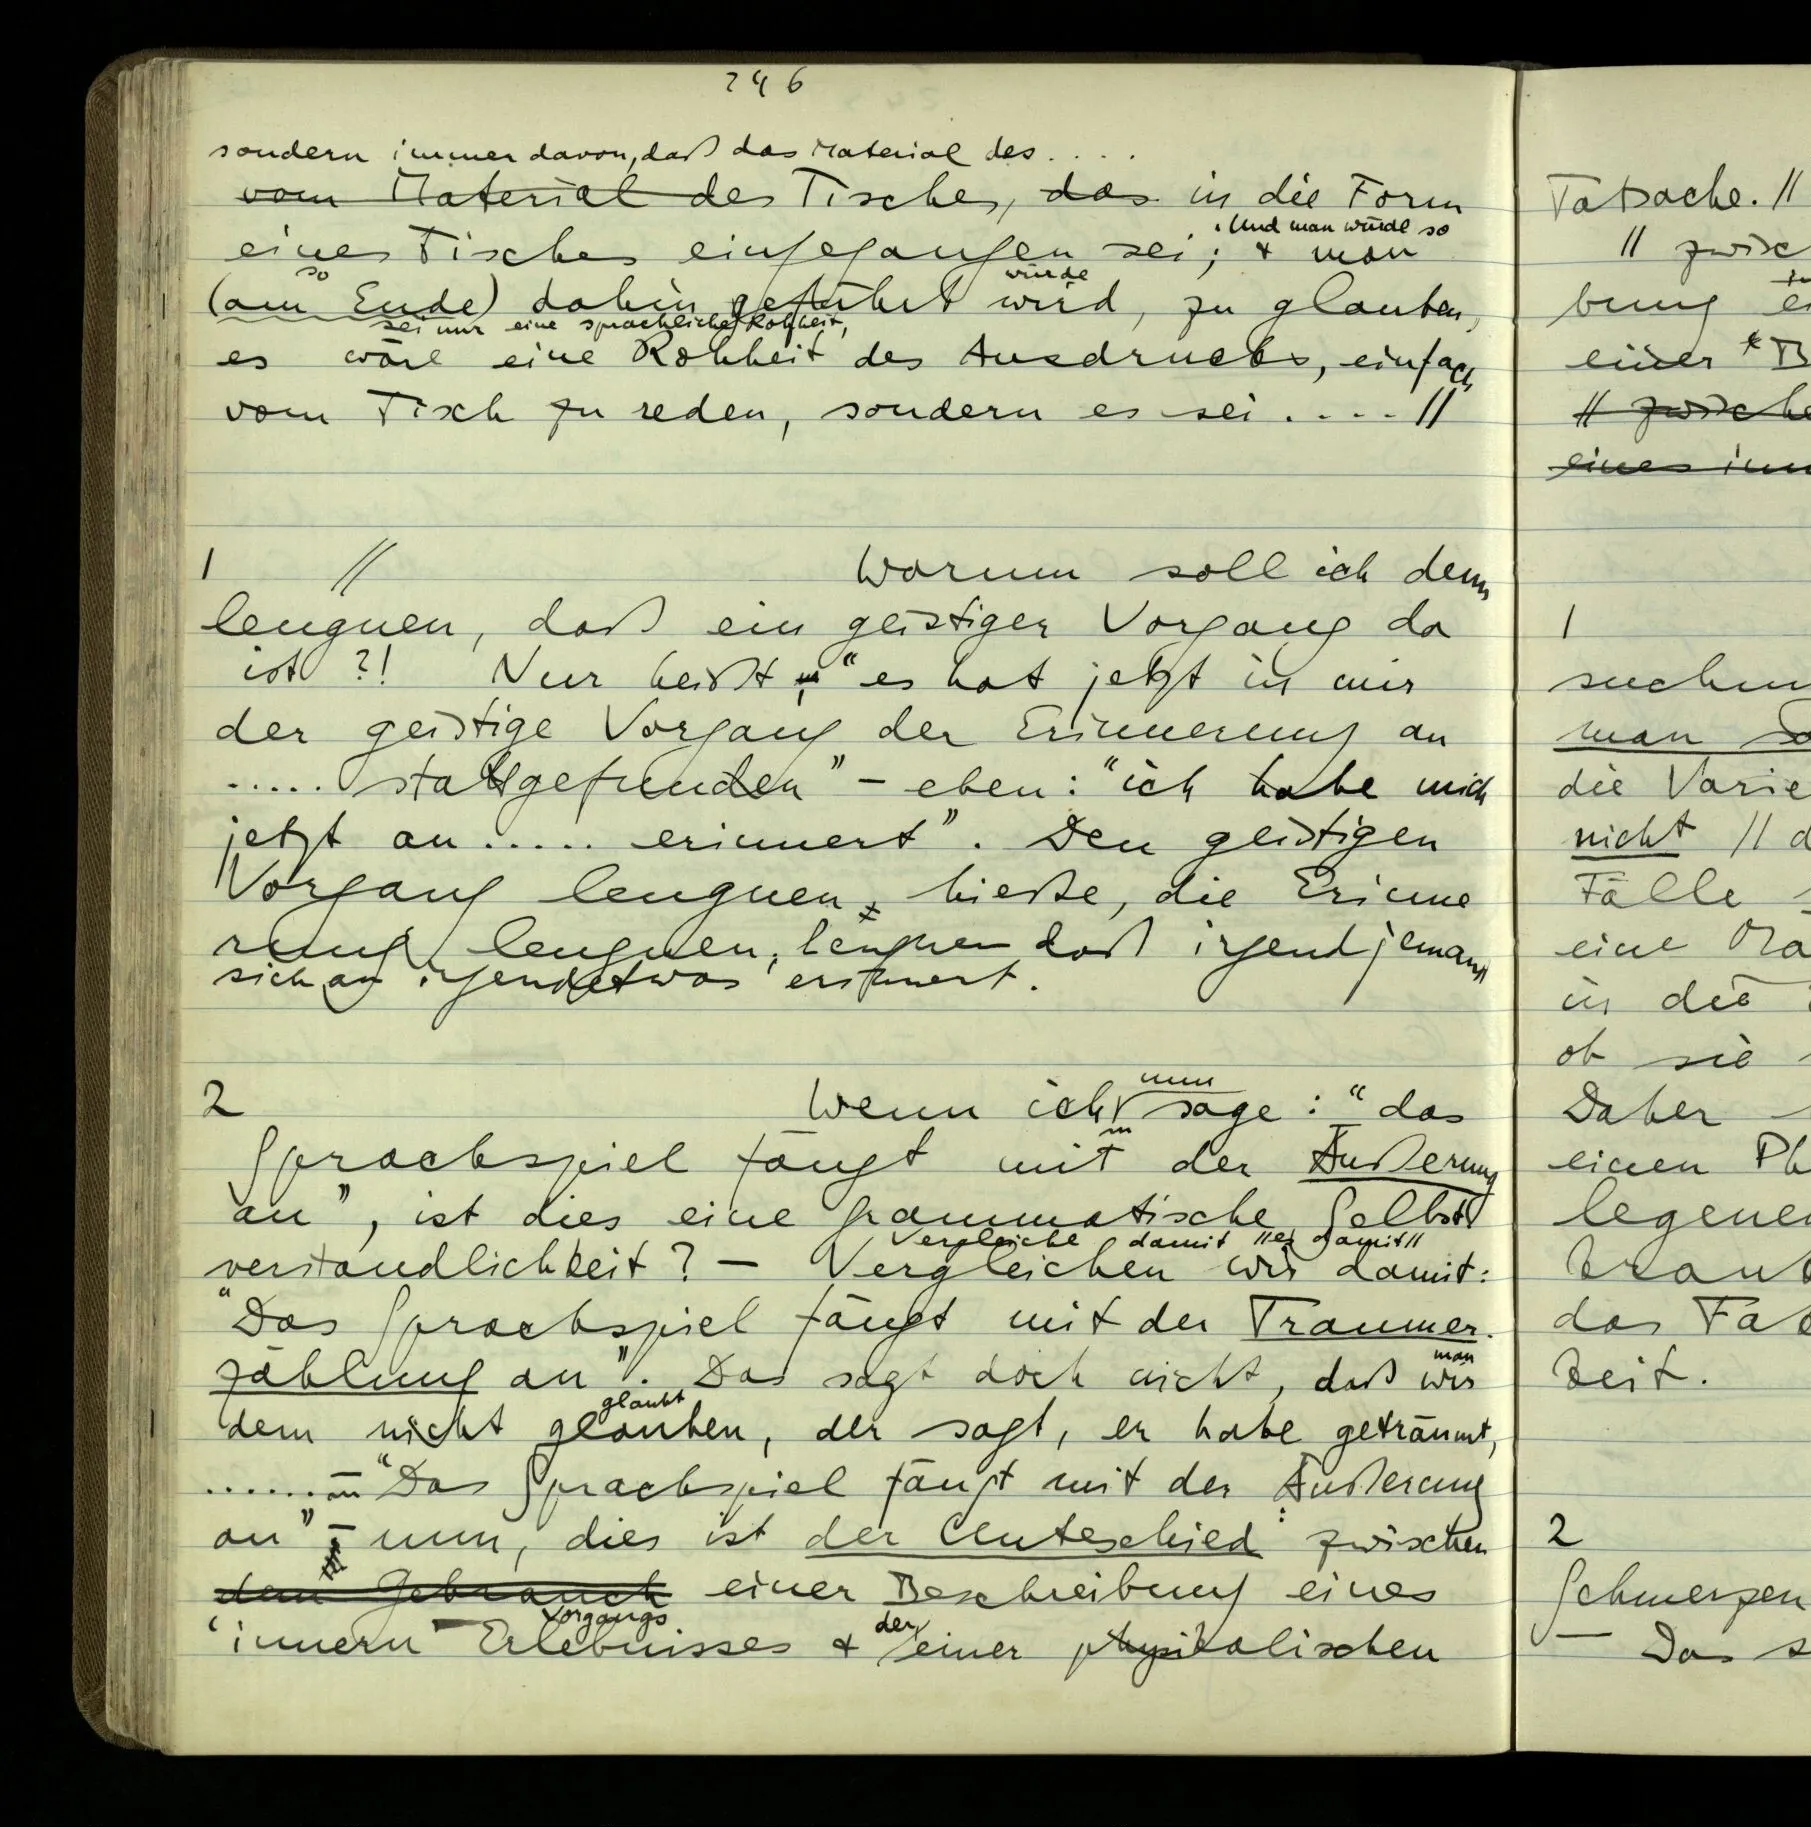 246
sondern immer davon, daß das Material des . . . .
vom Material des Tisches, das in die Form
. Und man würde so
eines Tisches eingegangen sei; & man
so würde
(am Ende) dahin geführt wird, zu glauben,
sei nur eine sprachliche Rohheit,
es wäre eine Rohheit des Ausdrucks, einfach
vom Tisch zu reden, sondern es sei . . . . //
1 // Warum soll ich denn
leugnen, daß ein geistiger Vorgang da
ist ?! Nur heißt “es hat jetzt in mir
der geistige Vorgang der Erinnerung an
..... stattgefunden” – eben: “ich habe mich
jetzt an ..... erinnert”. Den geistigen
Vorgang leugnen, hieße, die Erinne
rung leugnen; leugnen daß irgend jemand
sich an irgend etwas erinnert.
2 nun
Wenn ich sage: “das
Sprachspiel fängt mit der Äußerung
an”, ist dies eine grammatische Selbst
Vergleiche damit // es damit //
verständlichkeit? – Vergleichen wir damit:
“Das Sprachspiel fängt mit der Traumer-
man
zählung an”. Das sagt doch nicht, daß wir
glaubt
dem nicht glauben, der sagt, er habe geträumt,
...... – “Das Sprachspiel fängt mit der Äußerung
an” – nun, dies ist der Unteschied: zwischen
dem Gebrauch einer Beschreibung eines
Vorgangs der
‘innern’ Erlebnisses & einer physikalischen
Tatsache. //
// zwisch
bung
einer B
// zwische
eines inn
1
suchun
man
die Varie
nicht //
Fälle
eine
in die
ob sie
Daher
einen Ph
legenen
krank
das Fak
keit.
2
Schmerzen
– Das s